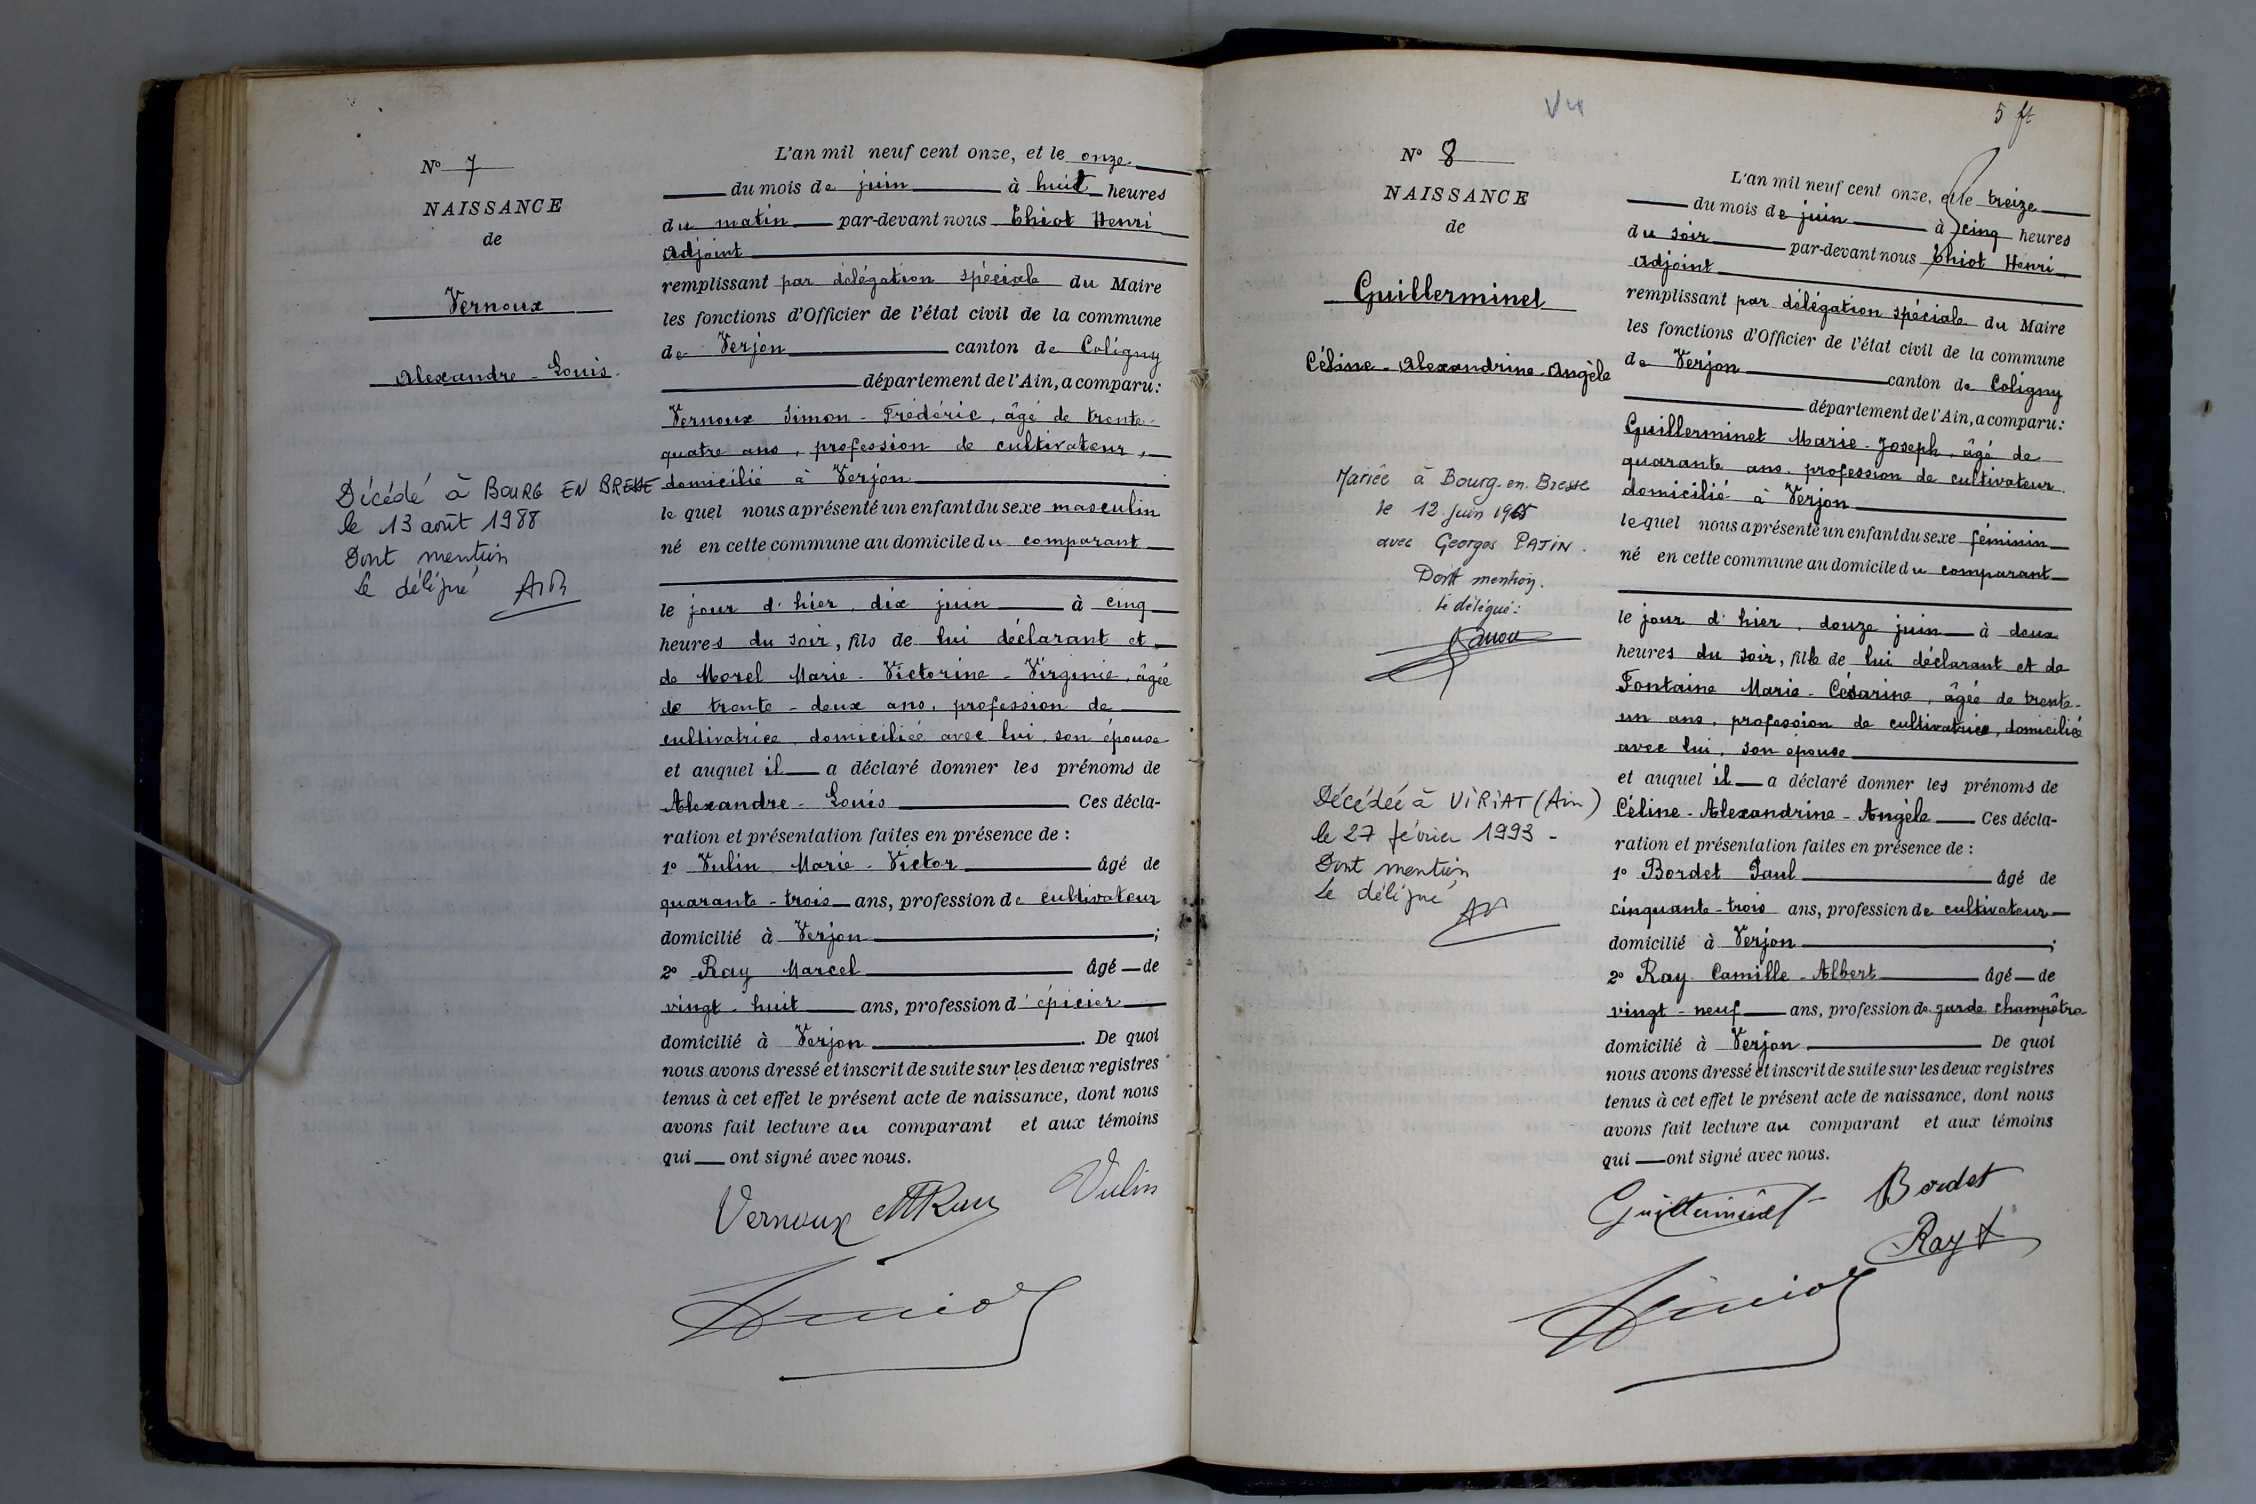 N° 7
NAISSANCE
de
Vernoux
Alexandre-Louis.
Décédé à BOURG EN BRESSE
le 13 août 1988
Dont mention
Le délégué
L'an mil neuf cent onze, et le onze
du mois de juin à huit heures
du matin par-devant nous Thiot Henri
Adjoint
remplissant par délégation spéciale du Maire
les fonctions d'Officier de l'état civil de la commune
de Verjon canton de Coligny
département de l'Ain, a comparu:
Vernoux Simon-Frédéric, âgé de trente-
quatre ans, profession de cultivateur,
domicilié à Verjon
le quel nous a présenté un enfant du sexe masculin
né en cette commune au domicile du comparant
le jour d'hier, dix juin à cinq
heures du soir, fils de lui déclarant et
de Morel Marie-Victorine-Virginie, âgée
de trente-deux ans, profession de
cultivatrice, domiciliée avec lui, son épouse
et auquel il a déclaré donner les prénoms de
Alexandre-Louis Ces décla-
ration et présentation faites en présence de :
1° Vulin Marie-Victor âgé de
quarante-trois ans, profession de cultivateur
domicilié à Verjon ;
2° Ray Marcel âgé de
vingt-huit ans, profession d'épicier
domicilié à Verjon. De quoi
nous avons dressé et inscrit de suite sur les deux registres
tenus à cet effet le présent acte de naissance, dont nous
avons fait lecture au comparant et aux témoins
qui ont signé avec nous.
Vernoux MRay Vulin
5 ft
N° 8
NAISSANCE
de
Guillerminet
Céline-Alexandrine-Angèle
Mariée à Bourg-en-Bresse
le 12 juin 1965
avec Georges PATIN.
Dont mention.
Le délégué:
Décédée à VIRIAT (Ain)
le 27 février 1993 -
Dont mention
Le délégué
L'an mil neuf cent onze, et le treize
du mois de juin à cinq heures
du soir par-devant nous Thiot Henri
Adjoint
remplissant par délégation spéciale du Maire
les fonctions d'Officier de l'état civil de la commune
de Verjon canton de Coligny
département de l'Ain, a comparu:
Guillerminet Marie-Joseph, âgé de
quarante ans, profession de cultivateur
domicilié à Verjon
le quel nous a présenté un enfant du sexe féminin
né en cette commune au domicile du comparant
le jour d'hier, douze juin à deux
heures du soir, fille de lui déclarant et de
Fontaine Marie-Césarine, âgée de trente-
un ans, profession de cultivatrice, domiciliée
avec lui, son épouse
et auquel il a déclaré donner les prénoms de
Céline-Alexandrine-Angèle Ces décla-
ration et présentation faites en présence de :
1° Bordet Paul âgé de
cinquante-trois ans, profession de cultivateur
domicilié à Verjon ;
2° Ray Camille-Albert âgé de
vingt-neuf ans, profession de garde champêtre
domicilié à Verjon De quoi
nous avons dressé et inscrit de suite sur les deux registres
tenus à cet effet le présent acte de naissance, dont nous
avons fait lecture au comparant et aux témoins
qui ont signé avec nous.
Guillerminet Bordet
Ray